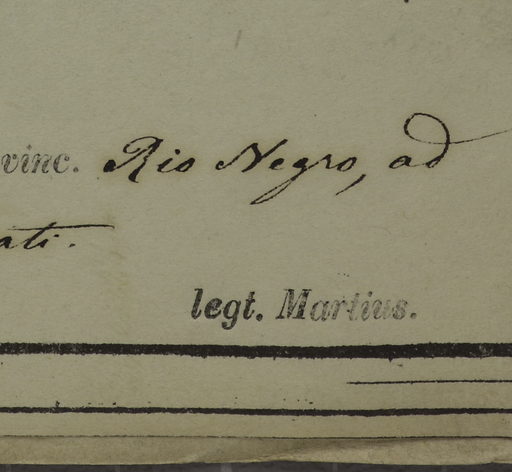 vinc. Rio Negro, ad
ati.
legt. Martius.